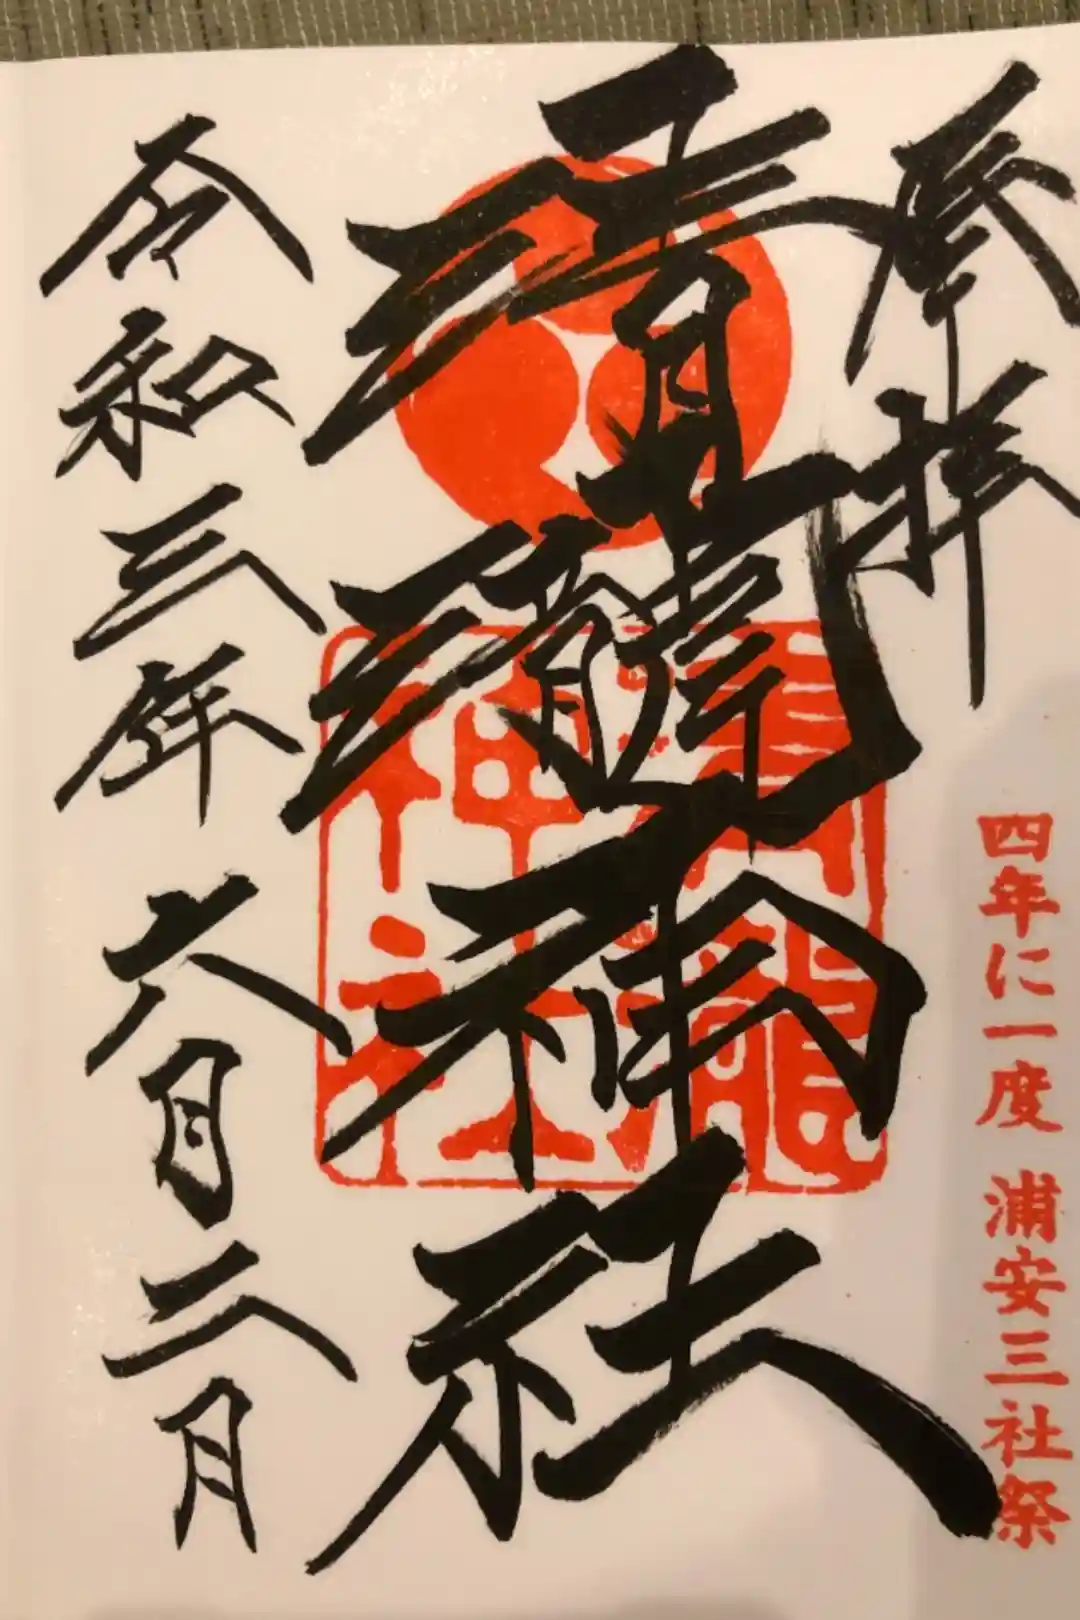 奉拝
四年に一度 浦安三社祭
清瀧神社
清瀧神社
令和三年六月二日